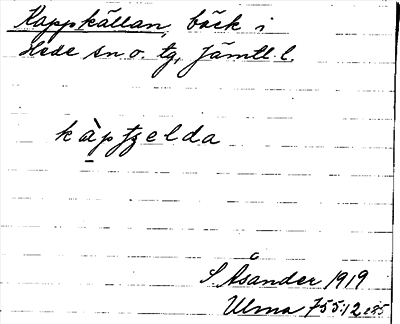 Kappkällan, bäck i
Hede sn o. tg, Jämtl. l.
kàpfgelda
S. Åsander 1919
Ulma 755:12 s 85